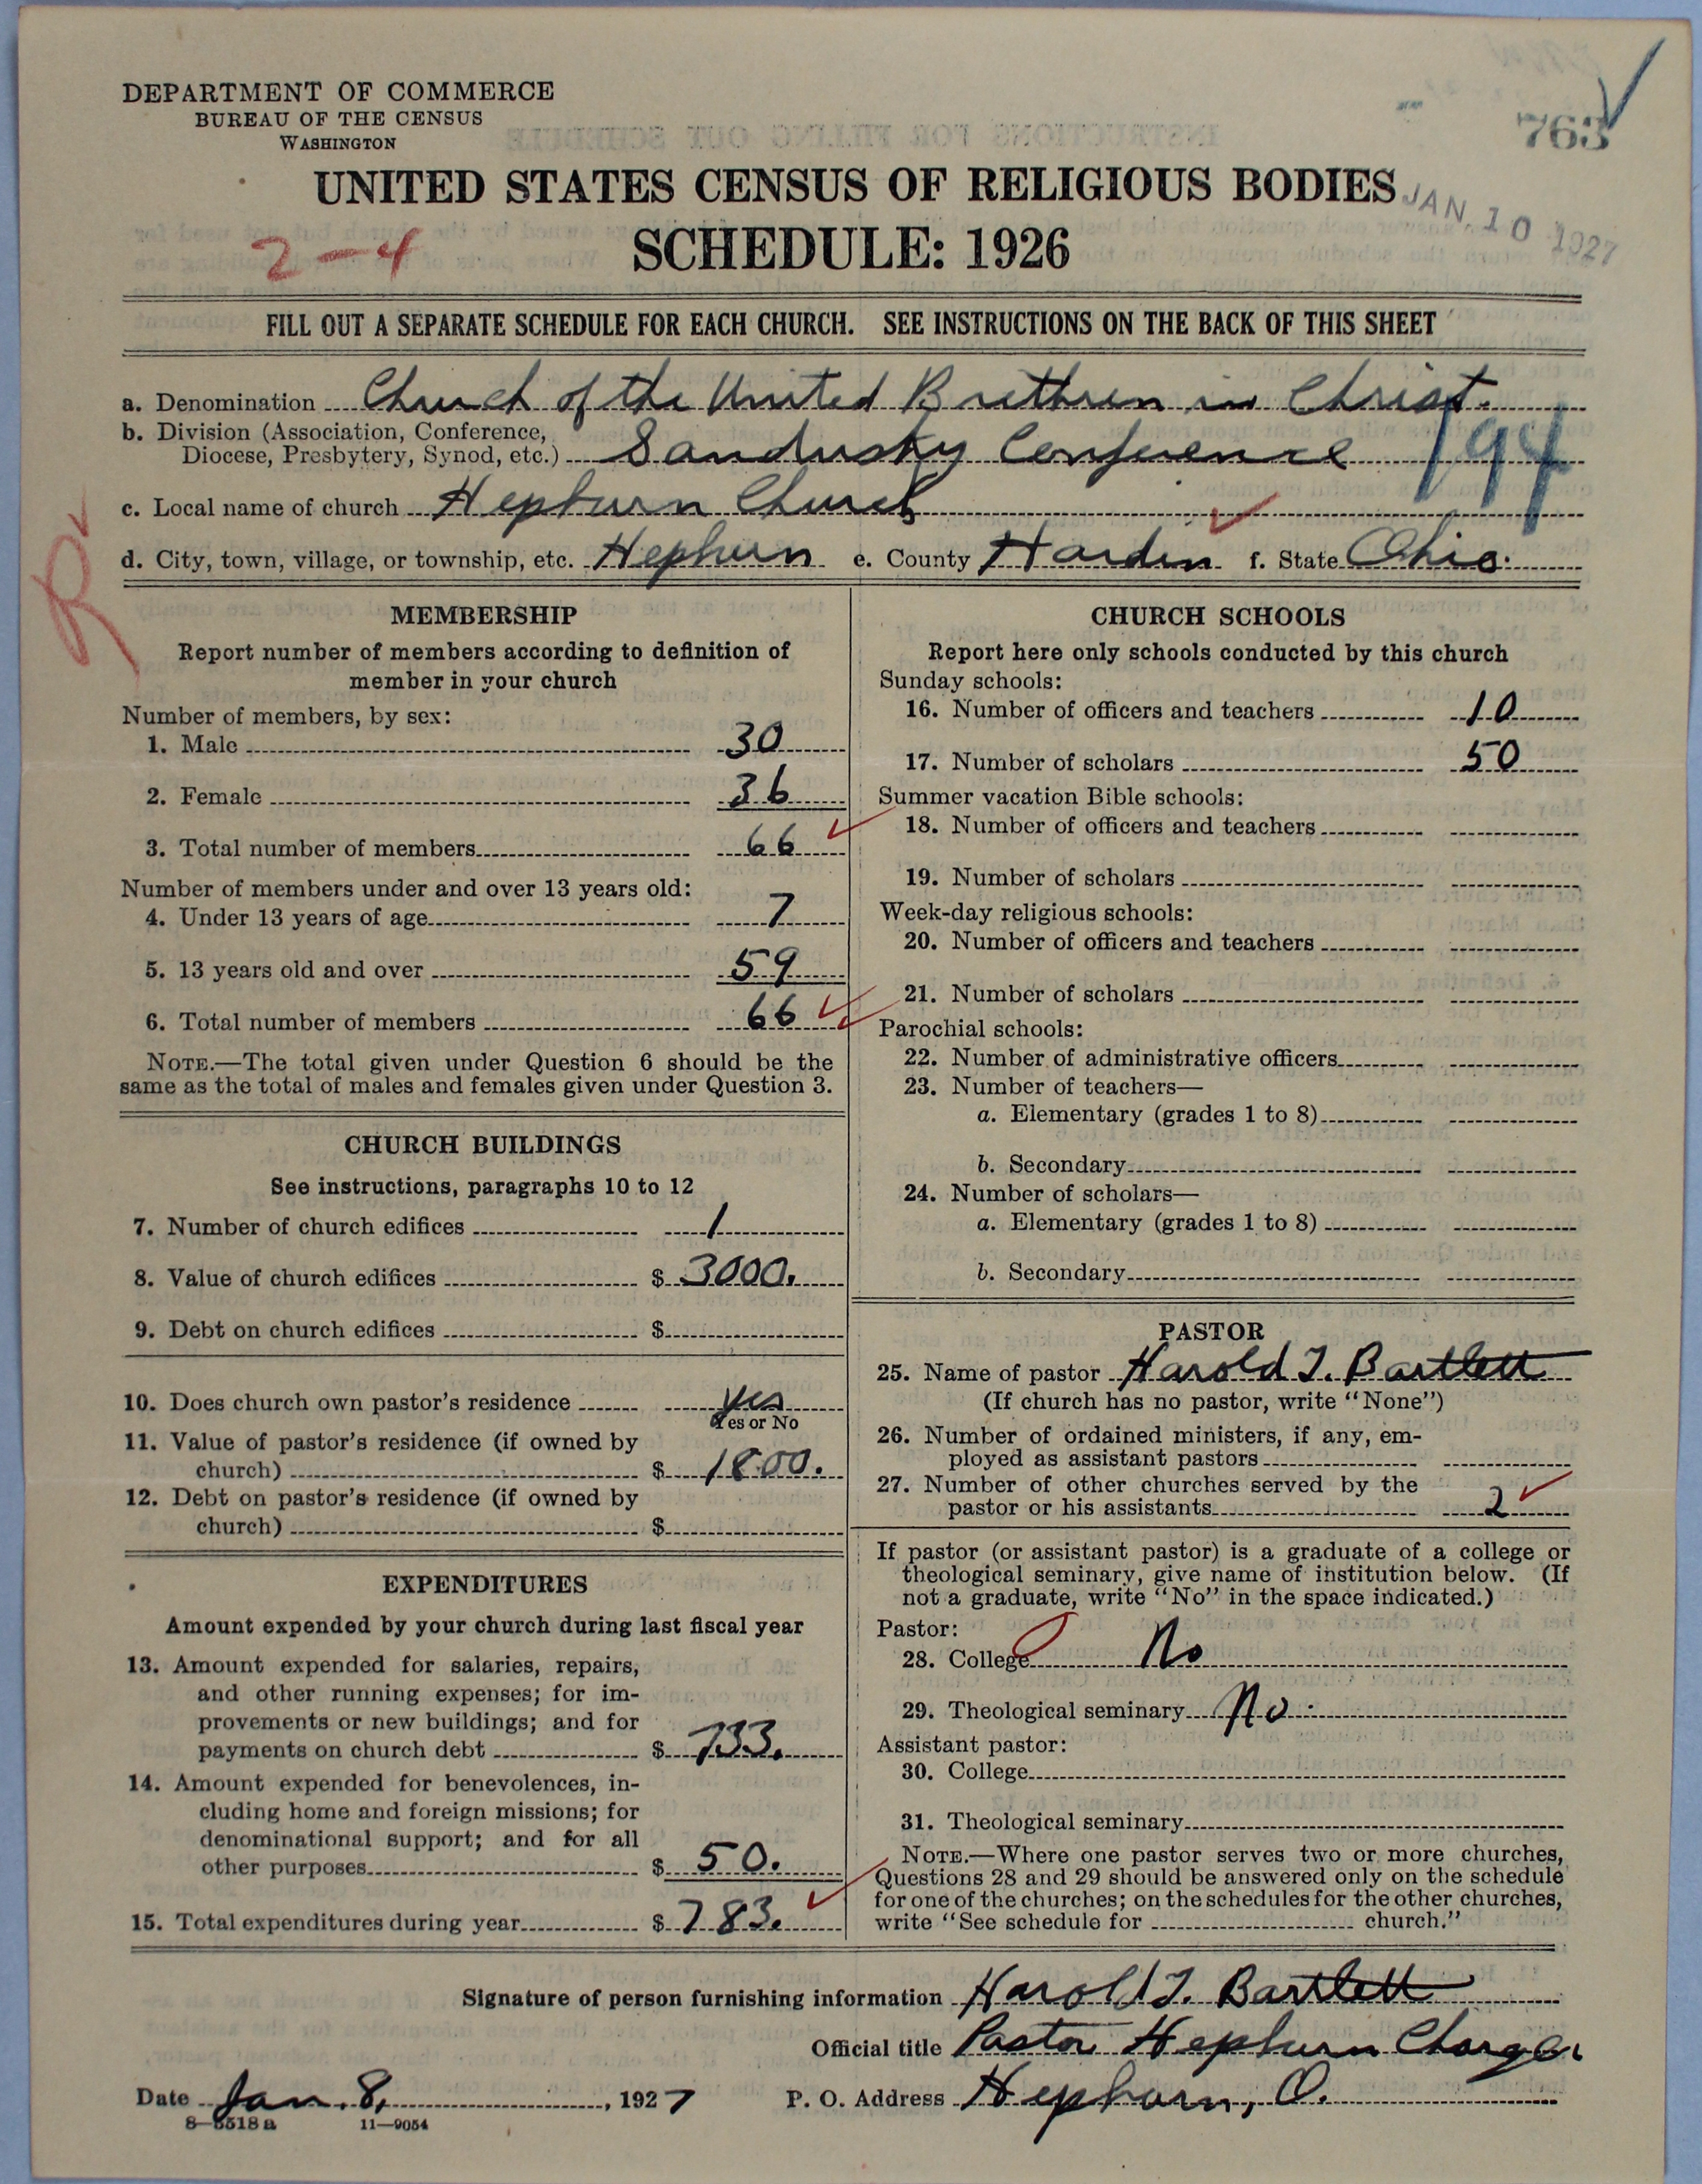 DEPARTMENT OF COMMERCE
BUREAU OF THE CENSUS
WASHINGTON
763
UNITED STATES CENSUS OF RELIGIOUS BODIES
JAN. 10 1927
2-4
SCHEDULE: 1926
FILL OUT A SEPARATE SCHEDULE FOR EACH CHURCH. SEE INSTRUCTIONS ON THE BACK OF THIS SHEET
a. Denomination Church of the United Brethren in Christ.
b. Division (Association, Conference,
Diocese, Presbytery, Synod, etc.) Sandusky Conference 194
c. Local name of church Hepburn Church
d. City, town, village, or township, etc. Hepburn e. County Hardin f. State Ohio.
MEMBERSHIP
Report number of members according to definition of
member in your church
Number of members, by sex:
1. Male 30
2. Female 36
3. Total number of members 66
Number of members under and over 13 years old:
4. Under 13 years of age 7
5. 13 years old and over 59
6. Total number of members 66
NOTE.—The total given under Question 6 should be the
same as the total of males and females given under Question 3.
CHURCH BUILDINGS
See instructions, paragraphs 10 to 12
7. Number of church edifices 1
8. Value of church edifices $ 3000.
9. Debt on church edifices $
10. Does church own pastor's residence yes
Yes or No
11. Value of pastor's residence (if owned by
church) $ 1800.
12. Debt on pastor's residence (if owned by
church) $
EXPENDITURES
Amount expended by your church during last fiscal year
13. Amount expended for salaries, repairs,
and other running expenses; for im-
provements or new buildings; and for
payments on church debt $ 733.
14. Amount expended for benevolences, in-
cluding home and foreign missions; for
denominational support; and for all
other purposes $ 50.
15. Total expenditures during year $ 783.
CHURCH SCHOOLS
Report here only schools conducted by this church
Sunday schools:
16. Number of officers and teachers 10
17. Number of scholars 50
Summer vacation Bible schools:
18. Number of officers and teachers
19. Number of scholars
Week-day religious schools:
20. Number of officers and teachers
21. Number of scholars
Parochial schools:
22. Number of administrative officers
23. Number of teachers—
a. Elementary (grades 1 to 8)
b. Secondary
24. Number of scholars—
a. Elementary (grades 1 to 8)
b. Secondary
PASTOR
25. Name of pastor Harold T. Bartlett
(If church has no pastor, write "None")
26. Number of ordained ministers, if any, em-
ployed as assistant pastors
27. Number of other churches served by the
pastor or his assistants 2
If pastor (or assistant pastor) is a graduate of a college or
theological seminary, give name of institution below. (If
not a graduate, write "No" in the space indicated.)
Pastor:
28. College No
29. Theological seminary No.
Assistant pastor:
30. College
31. Theological seminary
NOTE.—Where one pastor serves two or more churches,
Questions 28 and 29 should be answered only on the schedule
for one of the churches; on the schedules for the other churches,
write "See schedule for church."
Signature of person furnishing information Harold T. Bartlett
Official title Pastor Hepburn Charge
Date Jan. 8, 1927 P. O. Address Hepburn, O.
8-5518a 11-9054